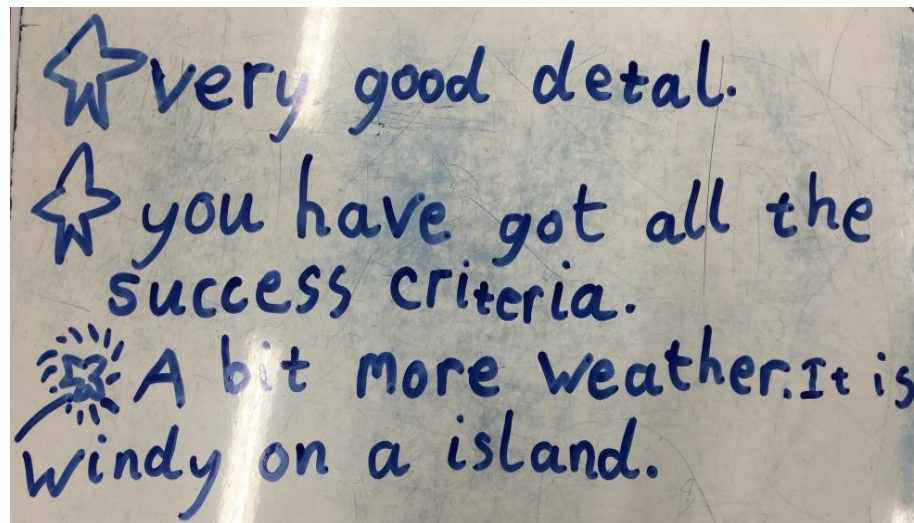 very good detal.
you have got all the
success criteria.
A bit more weather. It is
windy on a island.